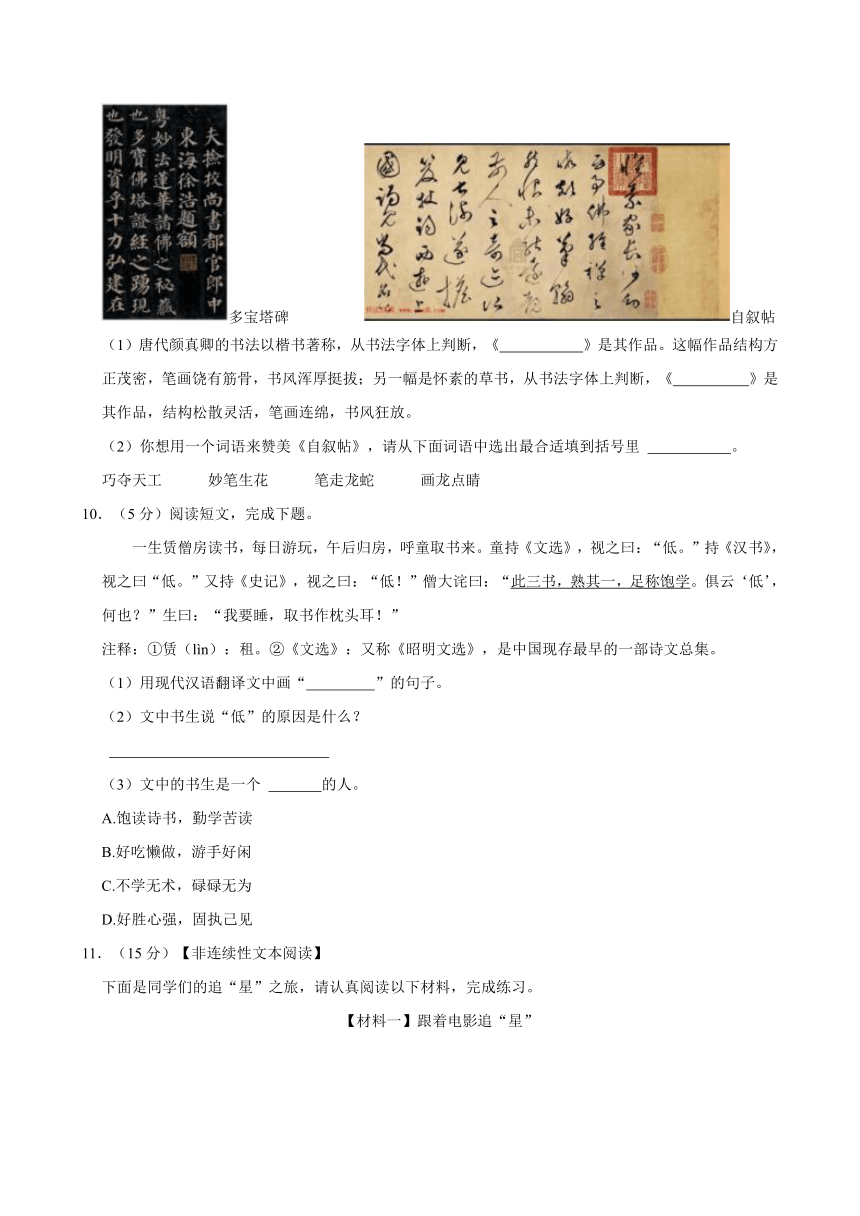 夫撿挍尚書都官郎中
東海徐浩題額
粤妙法蓮華諸佛之秘藏
也多寶佛塔證經之踴現
也發明資乎十力弘建在
多宝塔碑
懷素家長沙幼
而事佛經禪之
暇頗好筆翰
然恨未能遠覩
前人之奇迹所
見甚淺遂擔
笈杖錫西遊上
國謁見當代名
自叙帖
（1）唐代颜真卿的书法以楷书著称，从书法字体上判断，《____________》是其作品。这幅作品结构方
正茂密，笔画饶有筋骨，书风浑厚挺拔；另一幅是怀素的草书，从书法字体上判断，《___________》是
其作品，结构松散灵活，笔画连绵，书风狂放。
（2）你想用一个词语来赞美《自叙帖》，请从下面词语中选出最合适填到括号里 ____________。
巧夺天工 妙笔生花 笔走龙蛇 画龙点睛
10．（5分）阅读短文，完成下题。
一生赁僧房读书，每日游玩，午后归房，呼童取书来。童持《文选》，视之曰：“低。”持《汉书》，
视之曰“低。”又持《史记》，视之曰：“低！”僧大诧曰：“此三书，熟其一，足称饱学。俱云‘低’，
何也？”生曰：“我要睡，取书作枕头耳！”
注释：①赁（lìn）：租。②《文选》：又称《昭明文选》，是中国现存最早的一部诗文总集。
（1）用现代汉语翻译文中画“__________”的句子。
（2）文中书生说“低”的原因是什么？
________________________________
（3）文中的书生是一个 ________的人。
A.饱读诗书，勤学苦读
B.好吃懒做，游手好闲
C.不学无术，碌碌无为
D.好胜心强，固执己见
11．（15分）【非连续性文本阅读】
下面是同学们的追“星”之旅，请认真阅读以下材料，完成练习。
【材料一】跟着电影追“星”